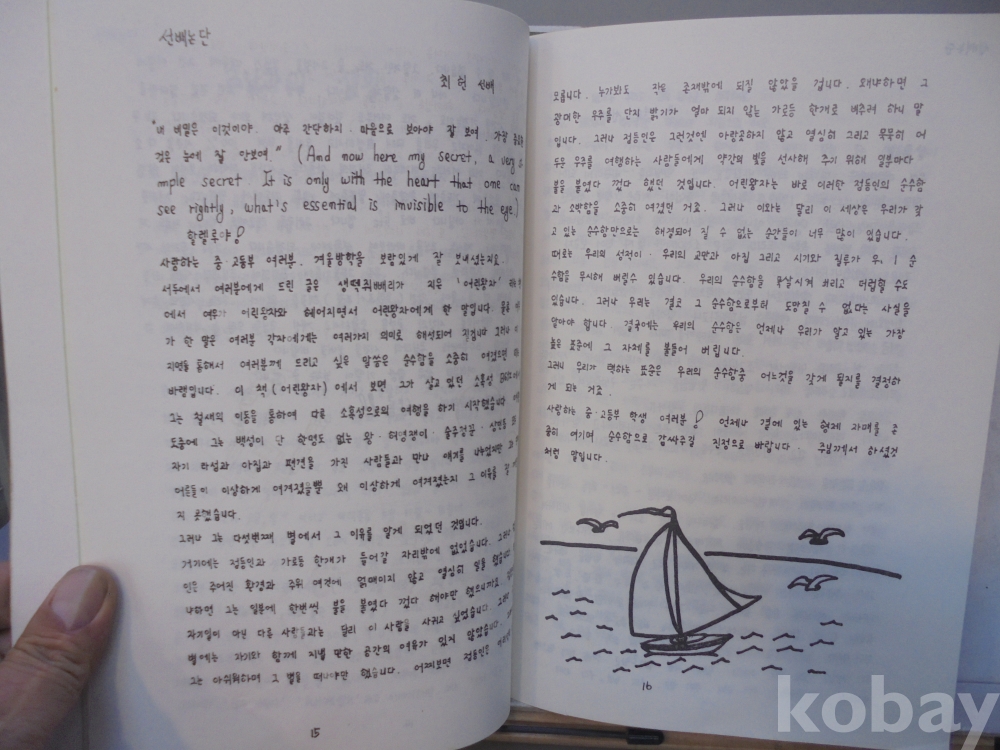 선배논단
최헌 선배
"내 비밀은 이것이야. 아주 간단하지. 마음으로 보아야 잘 보여. 가장
것은 눈에 잘 안보여." (And now here my secret, a very
mple secret. It is only with the heart that one can
see rightly, what's essential is invisible to the eye.)
할렐루야!
사랑하는 중·고등부 여러분. 겨울방학을 보람있게 잘 보내셨는지요.
서두에서 여러분에게 드린 글은 생떽쥐뻬리가 지은 '어린왕자'
에서 여우가 어린왕자와 헤어지면서 어린왕자에게 한 말입니다.
가 한 말은 여러분 각자에게는 여러가지 의미로 해석되어 지겠지만
지면을 통해서 여러분께 드리고 싶은 말씀은 순수함을 소중히 여겼으면
바램입니다. 이 책(어린왕자)에서 보면 그가 살고 있던 소혹성
그는 철새의 이동을 통하여 다른 소혹성으로의 여행을 하기 시작했습니다
도중에 그는 백성이 단 한명도 없는 왕·허영쟁이·술주정꾼·
자기 타성과 아집과 편견을 가진 사람들과 만나 얘기를 나누었지만
어른들이 이상하게 여겨졌을뿐 왜 이상하게 여겨졌는지 그 이유를
지 못했습니다.
그러나 그는 다섯번째 별에서 그 이유를 알게 되었던 것입니다.
거기에는 점등인과 가로등 한개가 들어갈 자리밖에 없었습니다.
인은 주어진 환경과 주위 여건에 얽매이지 않고 열심히 일을 했습니다
냐하면 그는 일분에 한번씩 불을 붙였다 껐다 해야만 했으니까요.
자기일이 아닌 다른 사람들과는 달리 이 사람을 사귀고 싶었습니다.
별에는 자기와 함께 지낼 만한 공간의 여유가 있지 않았습니다.
그는 아쉬워하며 그 별을 떠나야만 했습니다. 어찌보면 점등인은
15
모릅니다. 누가봐도 작은 존재밖에 되질 않았을 겁니다. 왜냐하면 그
광대한 우주를 단지 밝기가 얼마 되지 않는 가로등 한개로 비추려 하니 말
입니다. 그러나 점등인은 그런것엔 아랑곳하지 않고 열심히 그리고 묵묵히 어
두운 우주를 여행하는 사람들에게 약간의 빛을 선사해 주기 위해 일분마다
불을 붙였다 껐다 했던 것입니다. 어린왕자는 바로 이러한 점등인의 순수함
과 소박함을 소중히 여겼던 거죠. 그러나 이와는 달리 이 세상은 우리가 갖
고 있는 순수함만으로는 해결되어 질 수 없는 순간들이 너무 많이 있습니다.
때로는 우리의 성전이 우리의 교만과 아집 그리고 시기와 질투가 우리 순
수함을 무시해 버릴수 있습니다. 우리의 순수함을 못살시게 하리고 더럽힐 수도
있습니다. 그러나 우리는 결코 그 순수함으로부터 도망칠 수 없다는 사실을
알아야 합니다. 결국에는 우리의 순수함은 언제나 우리가 알고 있는 가장
높은 표준에 그 자체를 붙들어 버립니다.
그러니 우리가 택하는 표준은 우리의 순수함중 어느것을 갖게 될지를 결정하
게 되는 거죠.
사랑하는 중·고등부 학생 여러분! 언제나 곁에 있는 형제 자매를 존
귀히 여기며 순수함으로 감싸주길 진정으로 바랍니다. 주님께서 하셨것
처럼 말입니다.
16
kobay